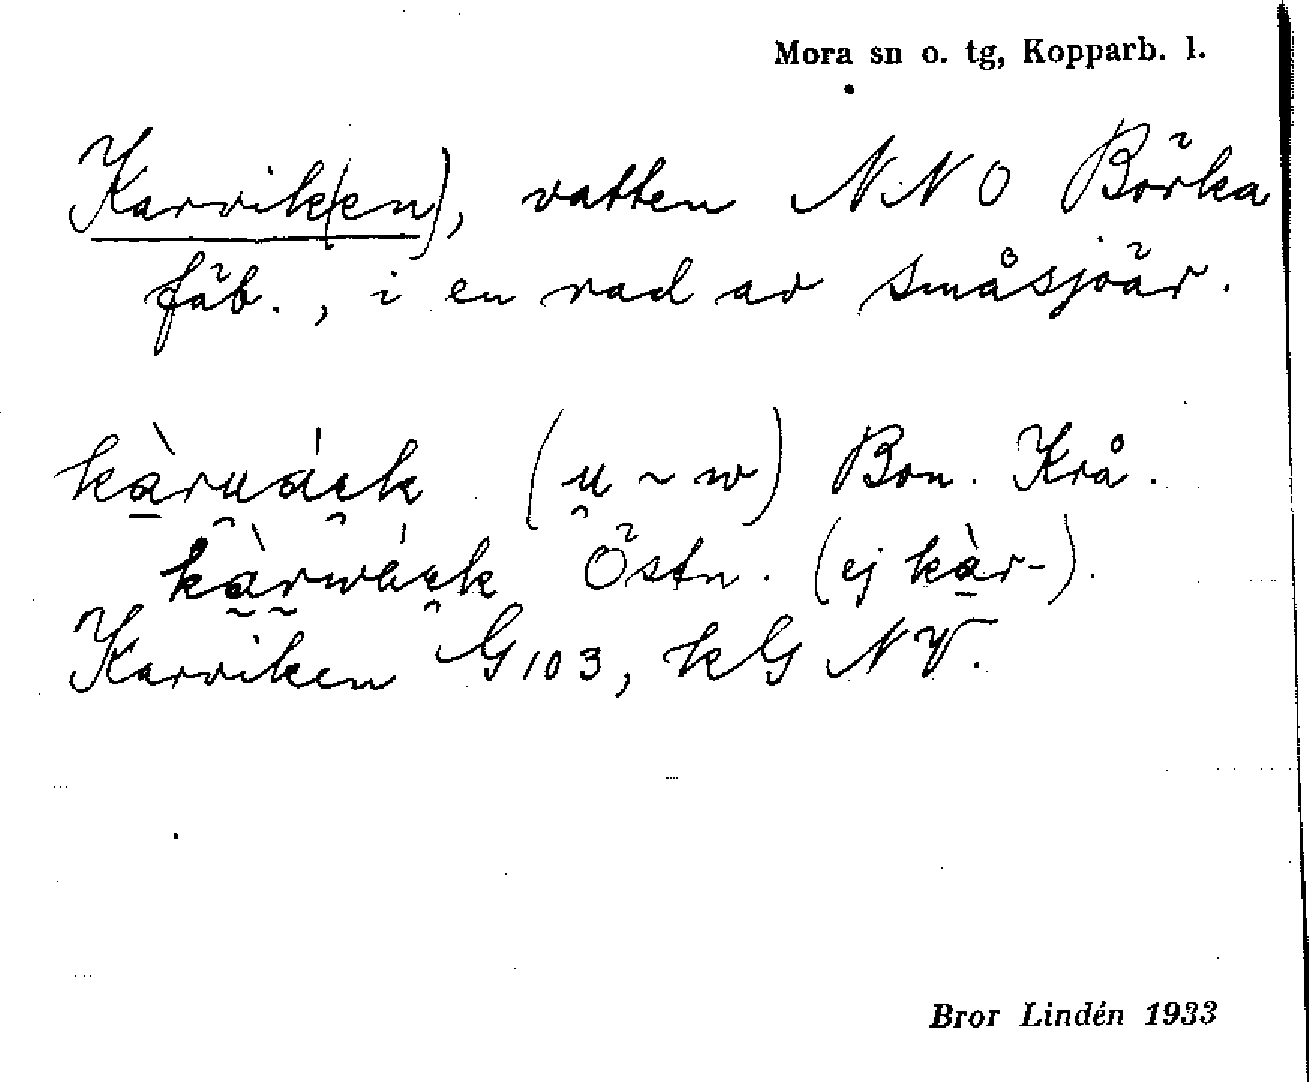 Mora sn o. tg, Kopparb. l.
Karvik(en), vatten NNO Börka
fäb., i en rad av småsjöar.
kàru̯áɛ̯k (u̯ ~ w) Bon. Krå.
kàrwáɛ̯k Östn. (ej kàr-).
Karviken G103, kG NV.
Bror Lindén 1933